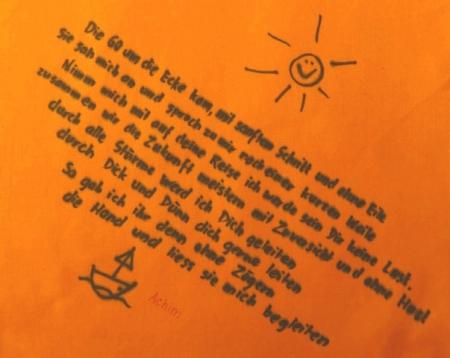 Die 60 um die Ecke kam, mit sanftem Schritt und ohne Eile
sie sah mich an und sprach zu mir nach einer kurzen Weile
Nimm mich mit auf deine Reise ich werde sein Dir keine Last.
zusammen wir die Zukunft meistern mit Zuversicht und ohne Hast
durch alle Stürme werd ich Dich geleiten
durch Dick und Dünn dich gerne leiten
So gab ich ihr denn ohne Zögern
die Hand und liess sie mich begleiten
Achim